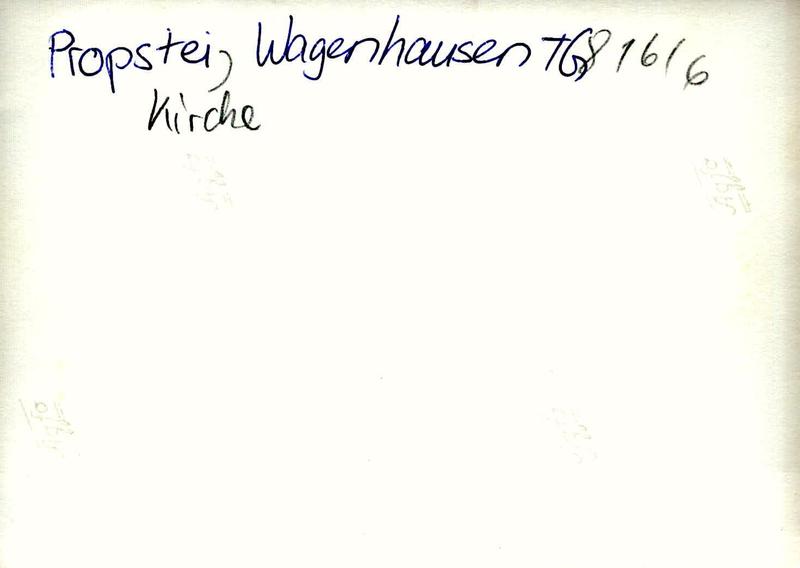 Propstei, Wagenhausen TG 8161/6
Kirche